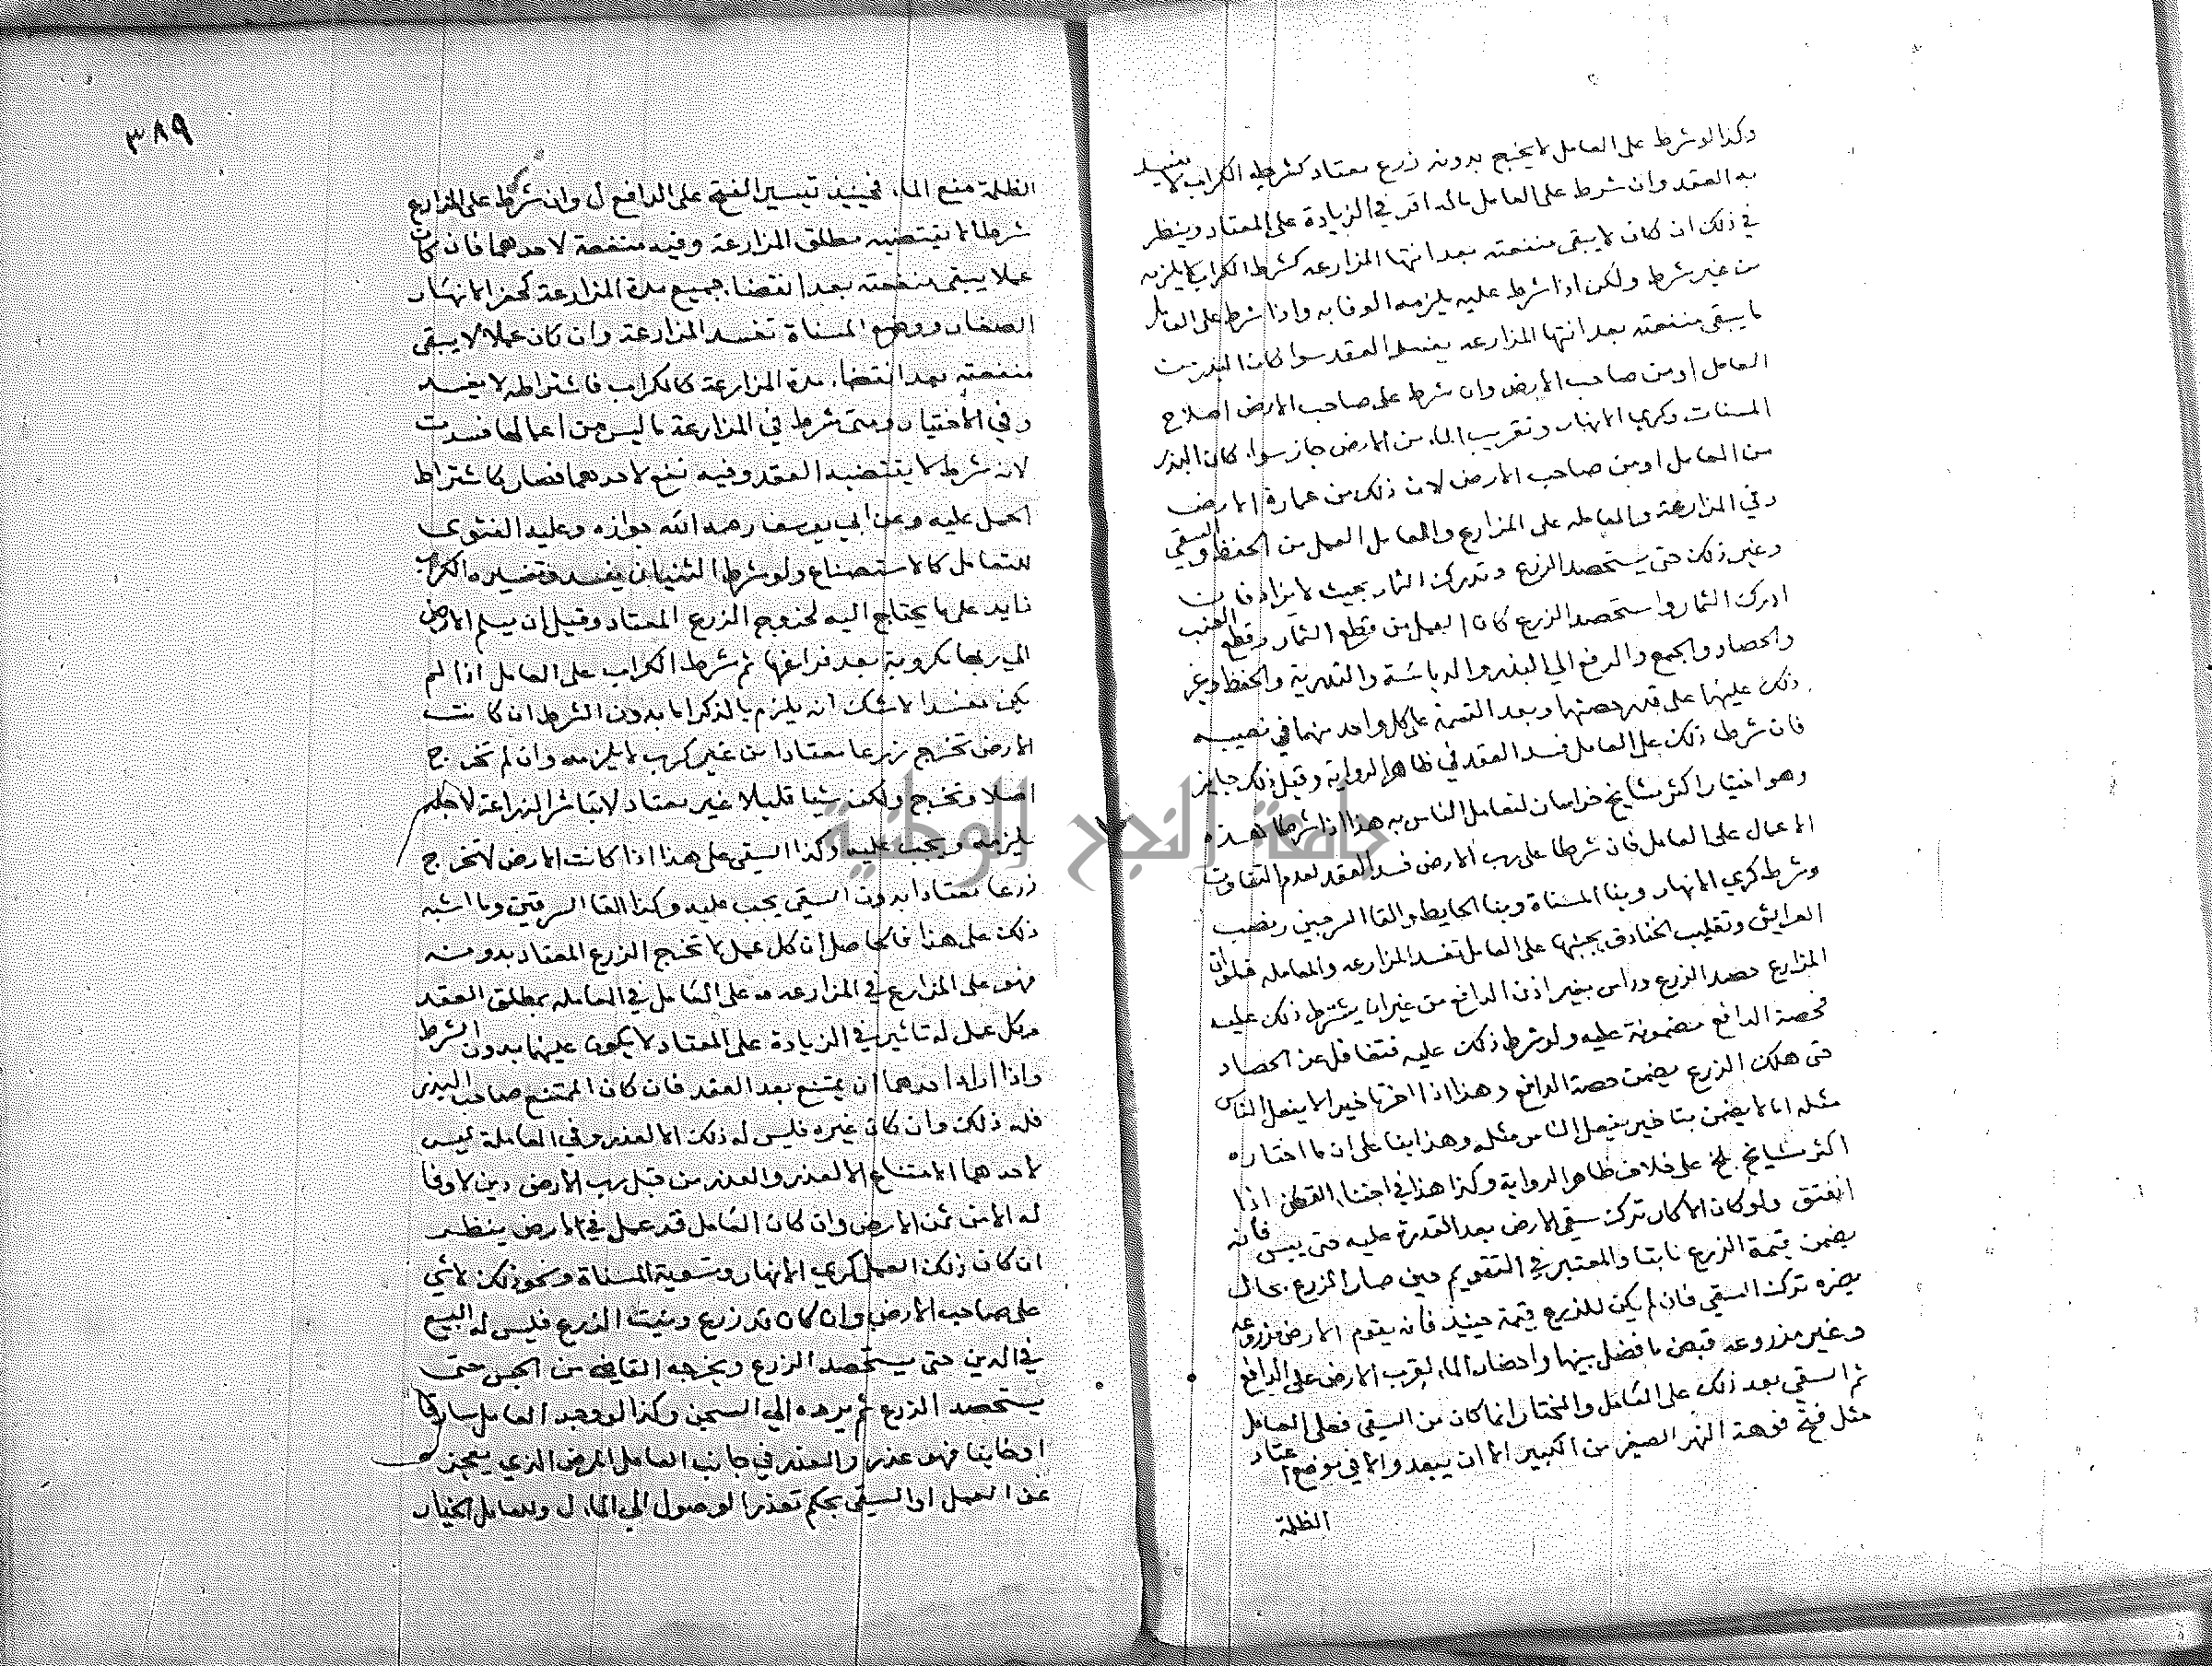 وكذا لو شرط على العامل ما يخرج بدونه زرع معتاد كشرط الكراب لا يفسد
به العقد وان شرط على العامل ماله اثر في الزيادة على المعتاد وينظر
في ذلك ان كان لا يبقى منفعته بعد انتها المزارعه كشرط الكراب لا يلزمه
من غير شرط ولكن اذا شرط عليه يلزمه الوفا به واذا شرط على العامل
ما يبقى منفعته بعد انتها المزارعه يفسد العقد سوا كان البذر من
العامل او من صاحب الارض وان شرط على صاحب الارض اصلاح
المسنات وكري الانهار وتقريب الماء من الارض جاز سواء كان البذر
من العامل او من صاحب الارض لان ذلك من عمارة الارض
وفي المزارعة والمعامله على المزارع والمعامل العمل من الحفظ والسقي
وغير ذلك حتى يستحصد الزرع وتدرك الثمار بحيث لا يزاد فان
ادركت الثمار واستحصد الزرع كان العمل من قطع الثمار وقطع العنب
والحصاد والجمع والرفع الي البيدر والدياسة والتذرية والحفظ وغير
ذلك عليهما على قدر حصتهما وبعد القسمة على كل واحد منهما في نصيبه
فان شرط ذلك على العامل فسد العقد في ظاهر الرواية وقيل ذلك جايز
وهو اختيار اكثر مشايخ خراسان لتعامل الناس به هذا اذا شرطا هذه
الاعمال على العامل فان شرطا على رب الارض فسد العقد لعدم التعارف
وشرط كري الانهار وبنا المسناة وبنا الحايط والقا السرجين ونصب
العرايش وتقليب الخنادق بجنبها على العامل تفسد المزارعه والمعامله فلو ان
المزارع حصد الزرع وداس بغير اذن الدافع من غير اما يشترط ذلك عليه
فحصة الدافع مضمونة عليه ولو شرط ذلك عليه فتغافل عن الحصاد
حتى هلك الزرع يضمن حصة الدافع وهذا اذا اخر تاخيرا لا يفعل الناس
مثله اما لا يضمن بتاخير يفعل الناس مثله وهذا بنا على ان ما اختاره
اكثر مشايخ بلخ على خلاف ظاهر الرواية وكذا هذا في اجتناء القطن اذا
انفتق ولو كان الاكار ترك سقي الارض بعد القدرة عليه حتى يبس فانه
يضمن قيمة الزرع نابتا والمعتبر في التقويم حين صار الزرع بحال
يضره ترك السقي فان لم يكن للزرع قيمة حينيذ فانه يقوم الارض مزروعه
وغير مزروعه فيضمن ما فضل بينها واحضار الماء لقرب الارض على الدافع
ثم السقي بعد ذلك على العامل والمختار انما كان من السقي فعلى العامل
مثل فتح فوهة النهر الصغير من الكبير الا ان يبعد والا في موضع اعتاد
الظلمة
٣٨٩
الظلمة منع الماء فحينيذ تيسير الفتح على الدافع وان شرط على المزارع
شرطا لا يقتضيه مطلق المزارعة وفيه منفعة لاحدهما فان كان
عملا يبقى منفعته بعد انقضا جميع مدة المزارعة كحفر الانهار
الصغار ووضع المسناة تفسد المزارعة وان كان عملا لا يبقى
منفعته بعد انقضاء مدة المزارعة كالكراب فاشتراطه لا يفسد
وفي الاختيار ومتى شرط في المزارعة ما ليس من اعمالها فسدت
لانه شرط لا يقتضيه العقد وفيه نفع لاحدهما فصار كاشتراط
الحمل عليه وعن ابي يوسف رحمه الله جوازه وعليه الفتوى
للتعامل كالاستصناع ولو شرط الثنيان يفسد وتفسيره الكراب
زايد على ما يحتاج اليه لخروج الزرع المعتاد وقيل ان يسلم الارض
الي ربها مكروبة بعد فراغها ثم شرط الكراب على العامل اذا لم
يكن مفسدا لا شك انه يلزم بالذكر اما بدون الشرط ان كانت
الارض تخرج زرعا معتادا من غير كرب لا يلزمه وان لم تخرج
اصلا وتخرج ولكن شيا قليلا غير معتاد لا تباشر الزراعة لاجله
يلزمه ويجب عليه وكذا السقي على هذا اذا كانت الارض لا تخرج
زرعا معتادا بدون السقي يجب عليه وكذا القا السرقين وما اشبه
ذلك على هذا فالحاصل ان كل عمل لا تخرج الزرع المعتاد بدونه
فهو على المزارع في المزارعه وعلى العامل في المعامله بمطلق العقد
وكل عمل له تاثير في الزيادة على المعتاد لا يكون عليهما بدون الشرط
واذا اراد احدهما ان يمتنع بعد العقد فان كان الممتنع صاحب البذر
فله ذلك وان كان غيره فليس له ذلك الا لعذر وفي المعاملة ليس
لاحدهما الامتناع الا لعذر والعذر من قبل رب الارض دين لا وفا
له الا من ثمن الارض وان كان العامل قد عمل في الارض ينظر
ان كان ذلك العمل كري الانهار وتسوية المسناة ونحو ذلك لا شي
على صاحب الارض وان كان قد زرع ونبت الزرع فليس له البيع
في الدين حتى يستحصد الزرع ويخرجه القاضي من الحبس حتى
يستحصد الزرع ثم يرده الي السجن وكذا لو وجد العامل سارقا
او خاينا فهو عذر والعذر في جانب العامل المرض الذي يعجز
عن العمل او السقي بحكم تعذر الوصول الي الماء وللعامل الخيار
جامعة النجاح الوطنية